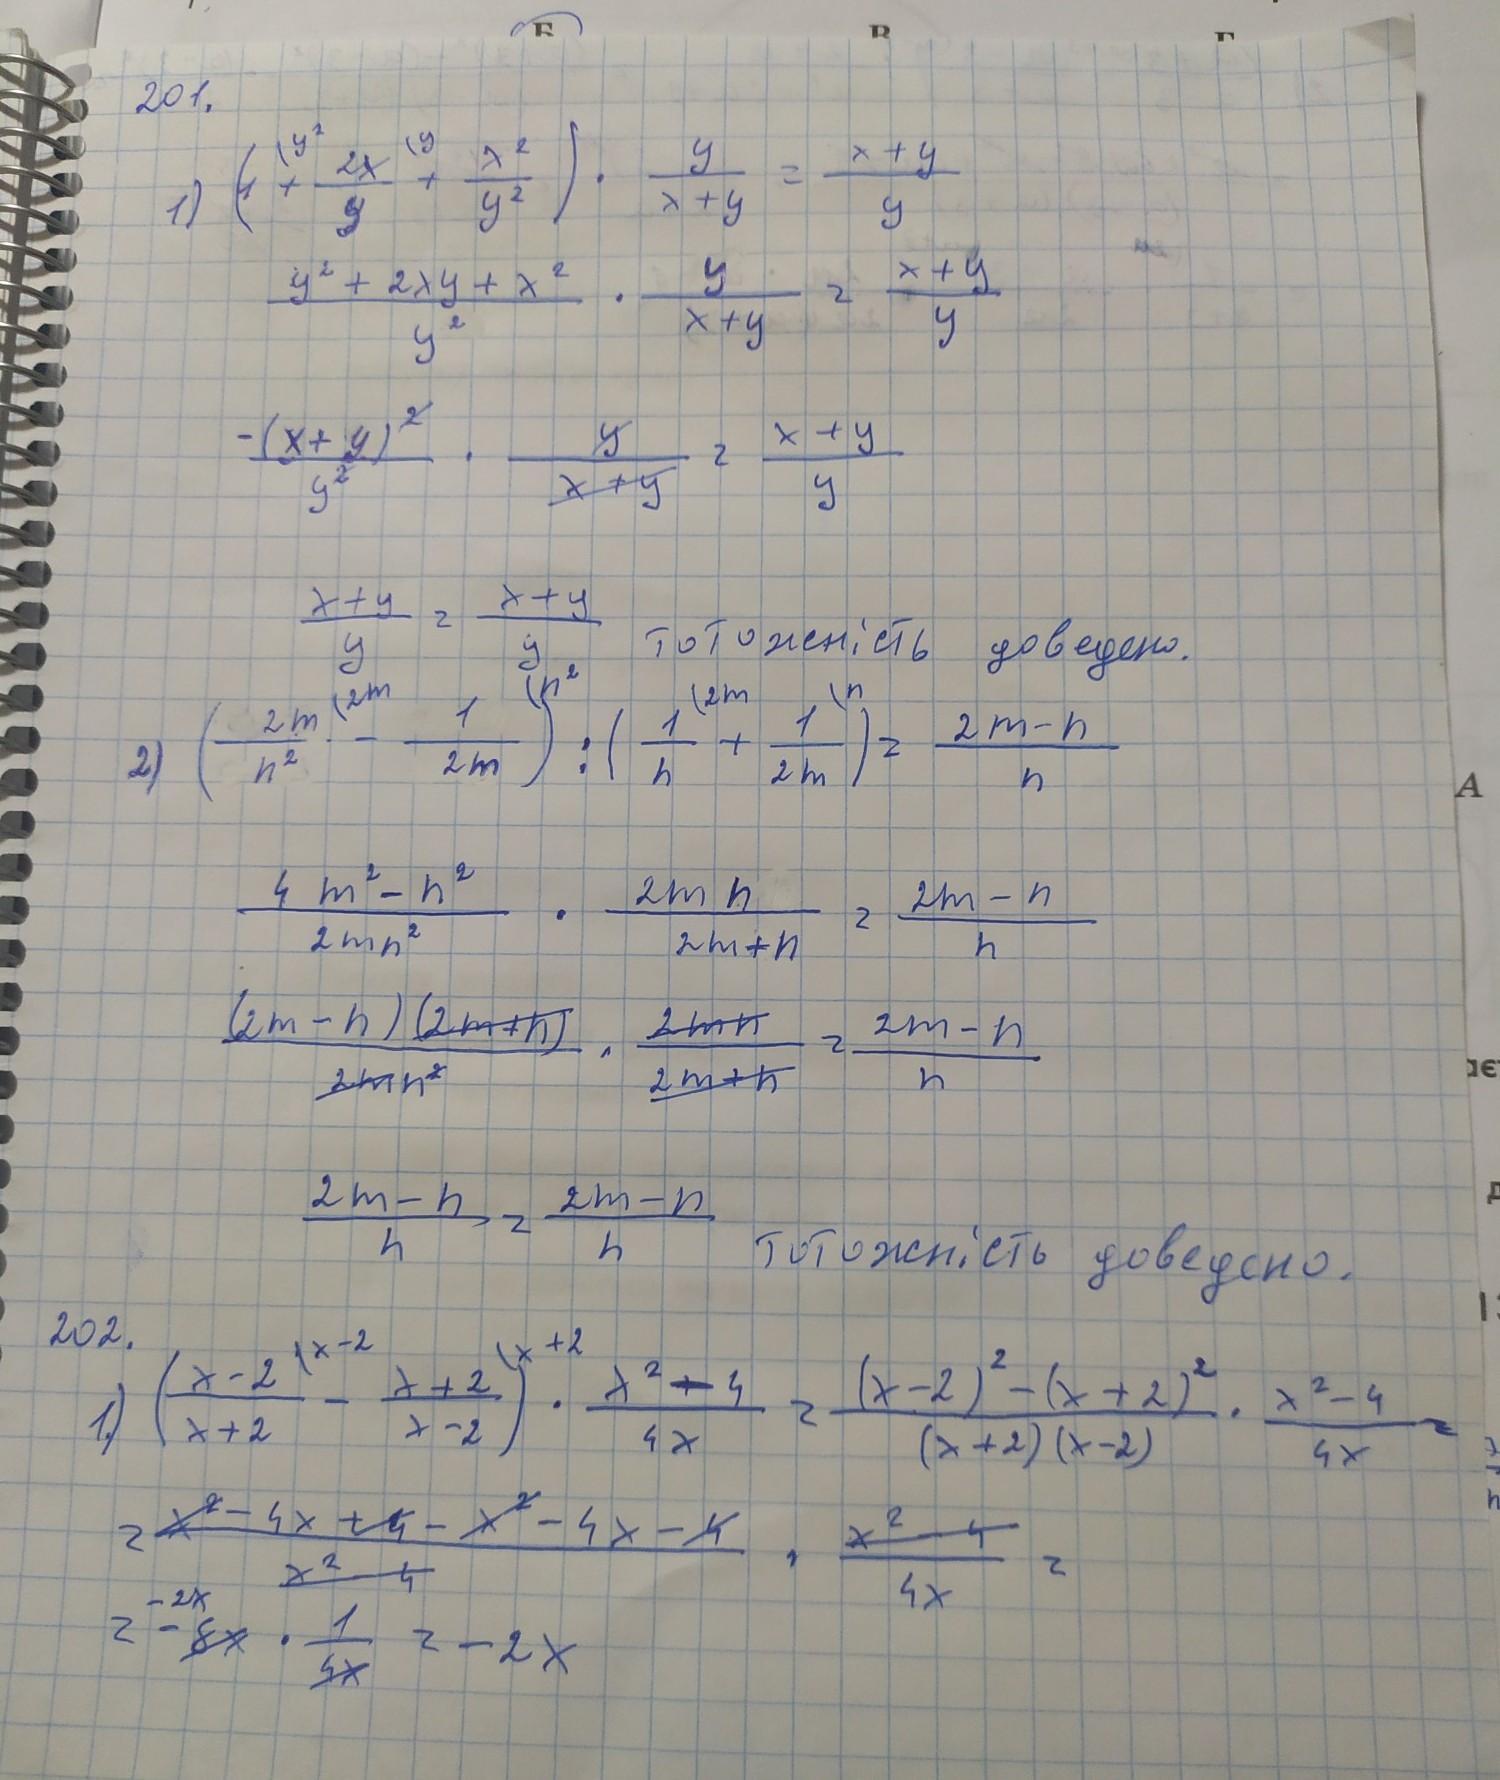 Б В Г
201.
1) (1 (y² + 2x/y (y + x²/y²) · y/x+y = x+y/y
y² + 2xy + x²/y² · y/x+y = x+y/y
-(x+y)²/y² · y/x+y = x+y/y
x+y/y = x+y/y тотожність доведено.
2) (2m/n² (2m - 1/2m (n²) : (1/n (2m + 1/2m (n) = 2m-n/n
А
4m² - n²/2mn² · 2mn/2m+n = 2m-n/n
(2m-n)(2m+n)/2mn² · 2mn/2m+n = 2m-n/n
ає
2m-n/n = 2m-n/n тотожність доведено.
202.
1) (x-2/x+2 (x-2 - x+2/x-2 (x+2) · x²-4/4x = (x-2)² - (x+2)²/(x+2)(x-2) · x²-4/4x =
= x² - 4x + 4 - x² - 4x - 4/x² - 4 · x² - 4/4x =
-2x
= -8x · 1/4x = -2x